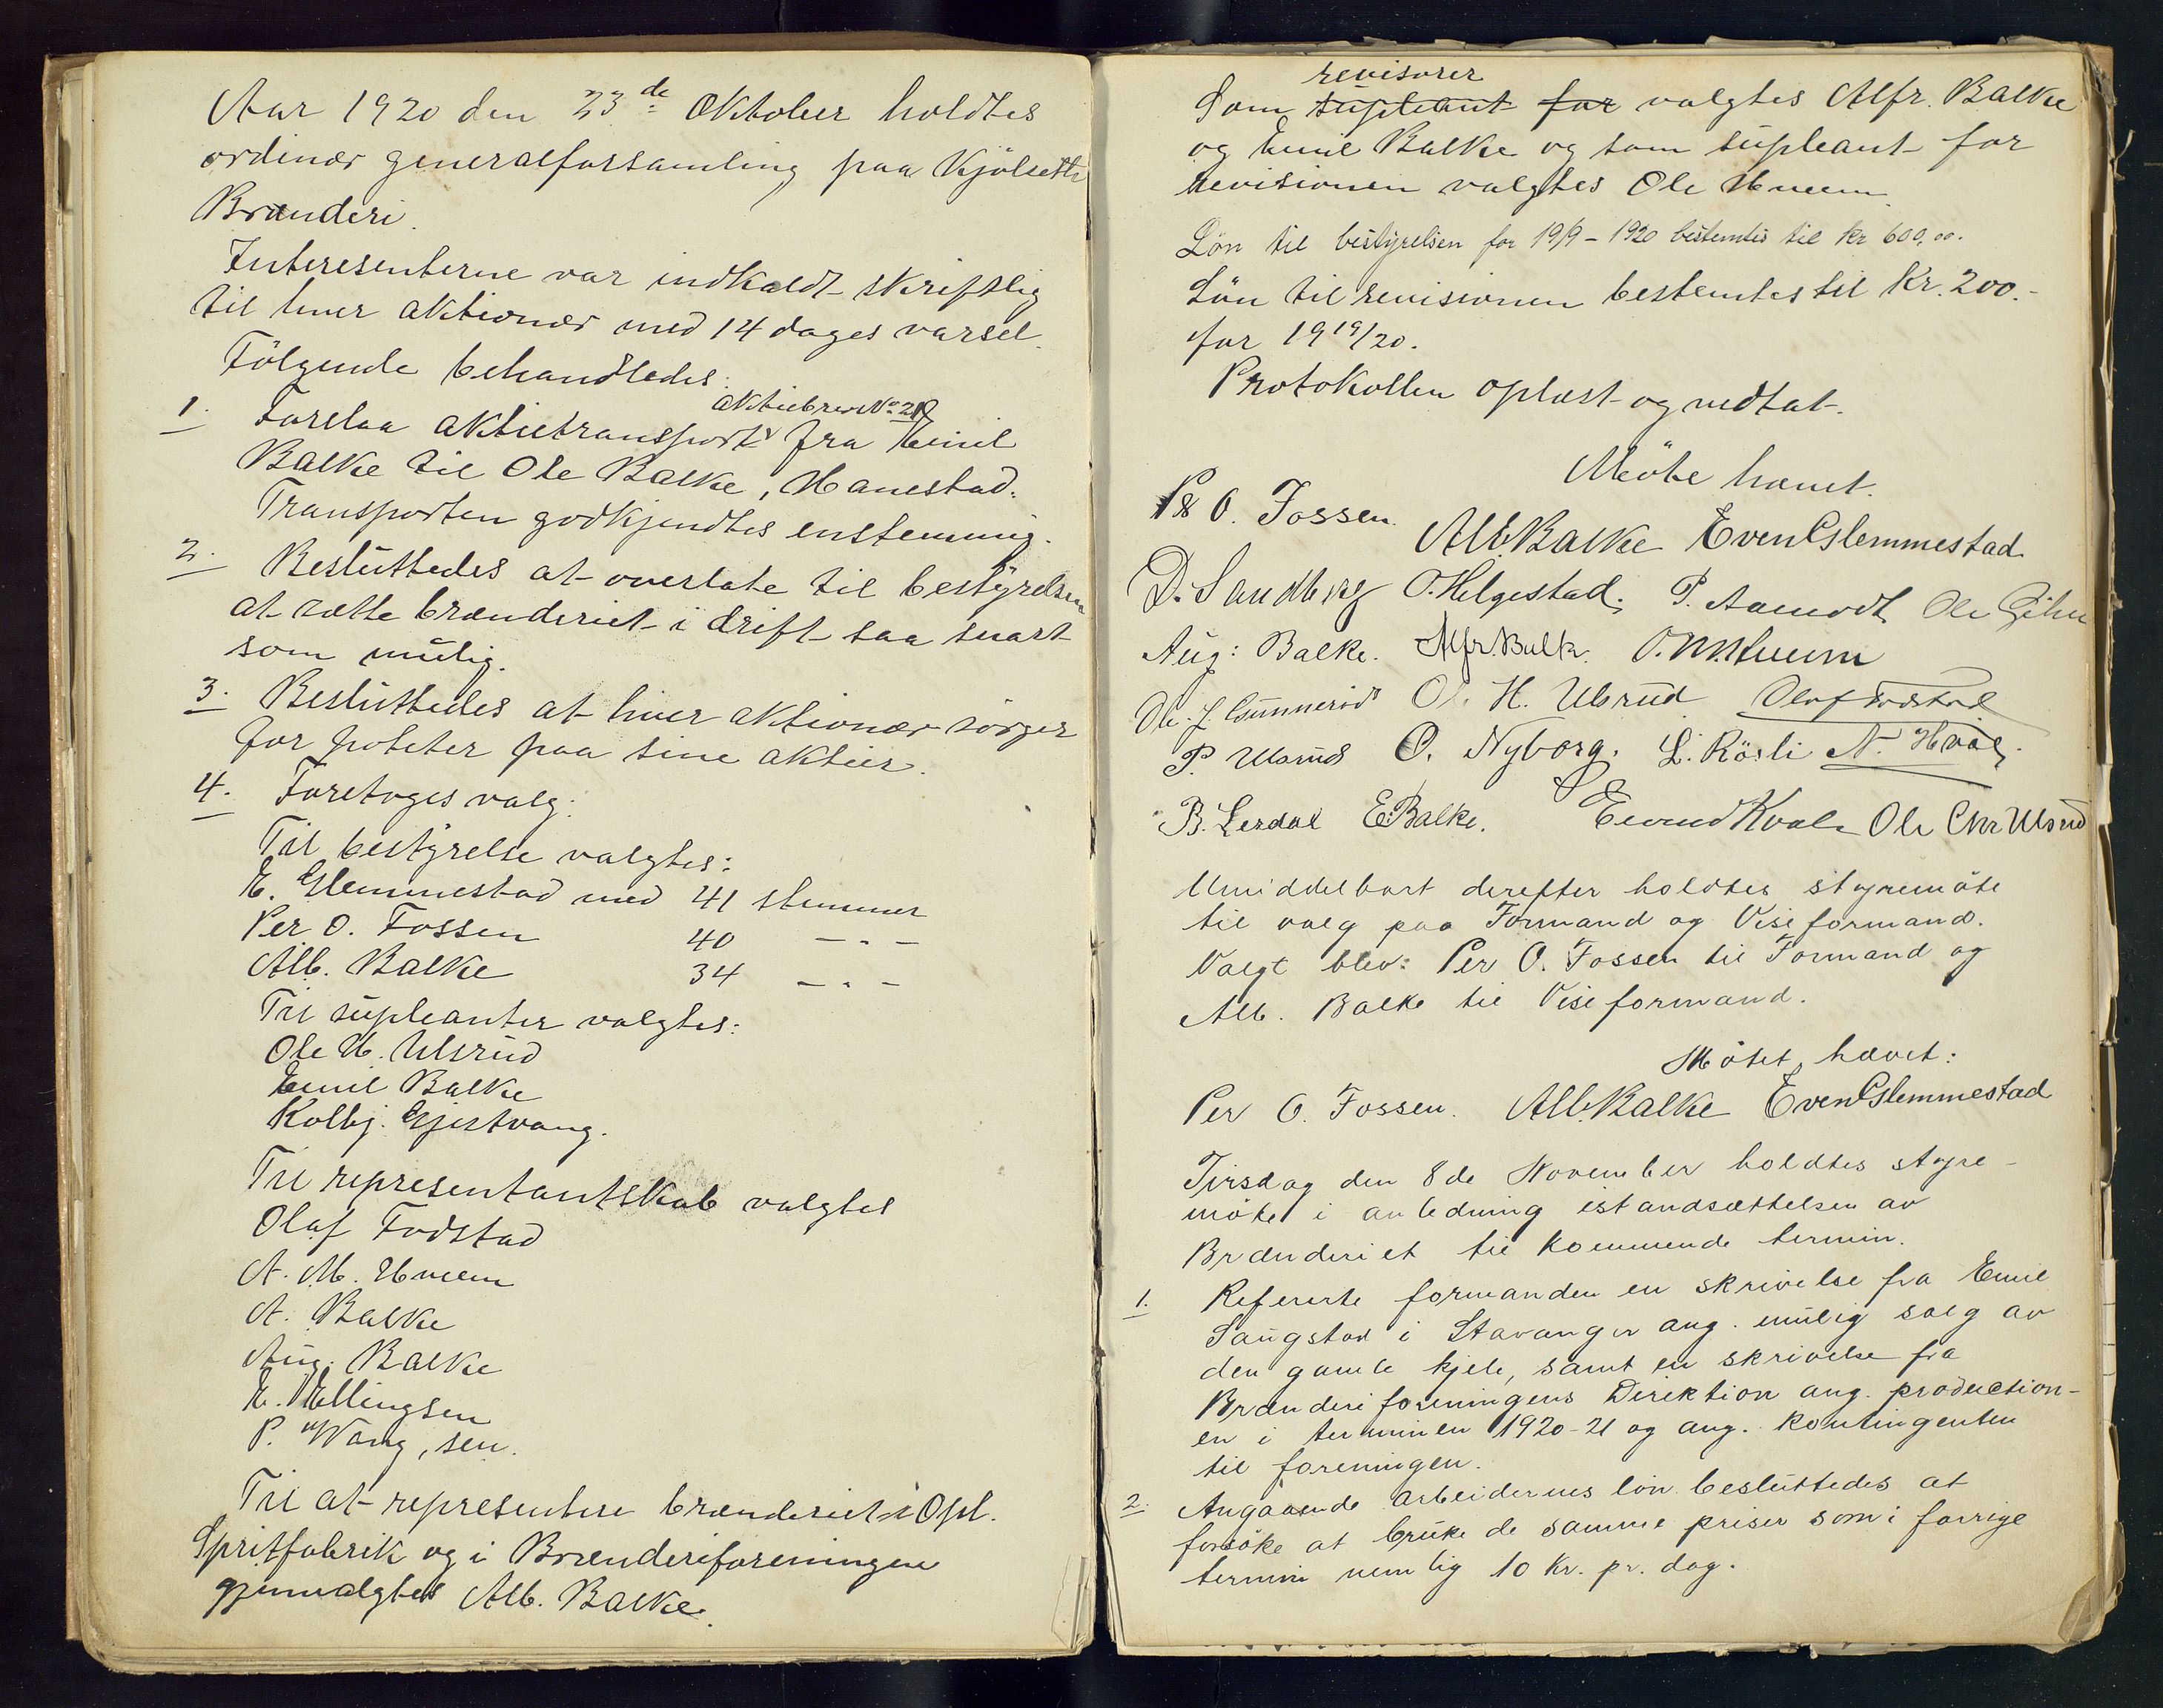 Aar 1920 den 23de Oktober holdtes
ordinær generalforsamling paa Kjölseth
Brænderi.
Interesenterne var indkaldt skriftlig
til hver aktionær med 14 dages varsel.
Følgende behandledes:
aktiebrev No 217
1. Forelaa aktietransport fra Emil
Balke til Ole Balke, Hanestad.
Transporten godkjendtes enstemmig.
2. Besluttedes at overlate til bestyrelsen
at sætte brænderiet i drift saa snart
som mulig.
3. Besluttedes at hver aktionær sørger
for poteter paa sine aktier.
4. Foretoges valg:
Til bestyrelse valgtes:
E. Glemmestad med 41 stemmer
Per O. Fossen 40 — " —
Alb. Balke 34 — " —
Til supleanter valgtes:
Ole H. Ulsrud
Emil Balke
Kolbj. Gjestvang.
Til representantskab valgtes
Olaf Fodstad
A. M. Hveem
A. Balke
Aug. Balke
E. Ellingsen
P. Wang, sen.
Til at representere brænderiet i Opl.
Spritfabrik og i Brænderiforeningen
gjenvalgtes Alb. Balke.
revisorer
Som supleant for valgtes Alfr. Balke
og Emil Balke og som supleant for
revisionen valgtes Ole Hveem.
Lön til bestyrelsen for 1919 - 1920 bestemtes til kr 600,00.
Lön til revisionen bestemtes til Kr. 200.-
for 1919/20.
Protokollen oplæst og vedtat.
Möte hævet.
Per O. Fossen. Alb. Balke Even Glemmestad
D. Sandberg O. Helgestad. P. Aamodt Ole
Aug: Balke. Alfr. Balke. O. M. Hveem
Ole J. Gunnerød O. H. Ulsrud Olaf Fodstad
P. Ulsrud O. Nyborg. L. Rösli N. Hval
B. Lerdal E. Balke. Eivind Kvale Ole Chr Ulsrud
Umiddelbart derefter holdtes styremöte
til valg paa Formand og Viseformand.
Valgt blev: Per O. Fossen til Formand og
Alb. Balke til Viseformand.
Mötet hævet:
Per O. Fossen. Alb. Balke Even Glemmestad
Tirsdag den 8de November holdtes styre-
möte i anledning istandsættelsen av
Brænderiet til kommende termin.
1. Refererte formanden en skrivelse fra Emil
Saugstad i Stavanger ang. mulig salg av
den gamle kjele, samt en skrivelse fra
Brænderiforeningens Direktion ang. production-
en i terminen 1920-21 og ang. kontingenten
til foreningen.
2. Angaaende arbeidernes lön besluttedes at
forsöke at bruke de samme priser som i forrige
termin nemlig 10 Kr. pr. dag.